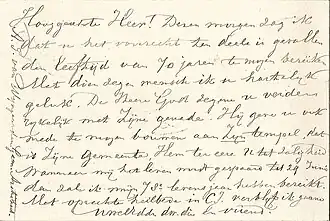 Hooggeachte Heer! Dezen morgen zag ik
dat u het voorrecht ten deele is gevallen
den leeftijd van 70 jaren te mogen bereiken
Met dien dagen mensch ik u hartelijk
geluk. De Heere God zegene u verders
rijkelijk met Zijne genade. Hij geve u ook
mede te mogen bouwen aan Zijn tempel, dat
is Zijne Gemeente, Hem ter eere u tot zaligheid
Wanneer mij het leven wordt gespaard tot 29 Juni
dan zal ik mijn 78e levensjaar hebben bereikt.
Met oprechte heilbede in C.J. verblijf ik gaarne
Uw vriend